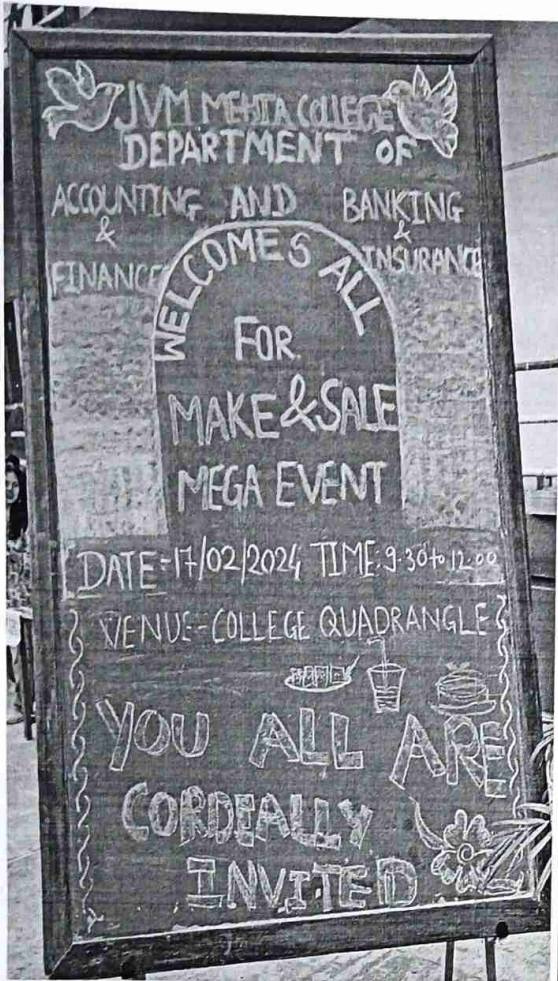 JVM MEHTA COLLEGE
DEPARTMENT OF
ACCOUNTING AND BANKING
& &
FINANCE INSURANCE
WELCOMES ALL
FOR
MAKE & SALE
MEGA EVENT
DATE-17/02/2024 TIME:9.30 to 12.00
VENUE-COLLEGE QUADRANGLE
YOU ALL ARE
CORDEALLY
INVITED